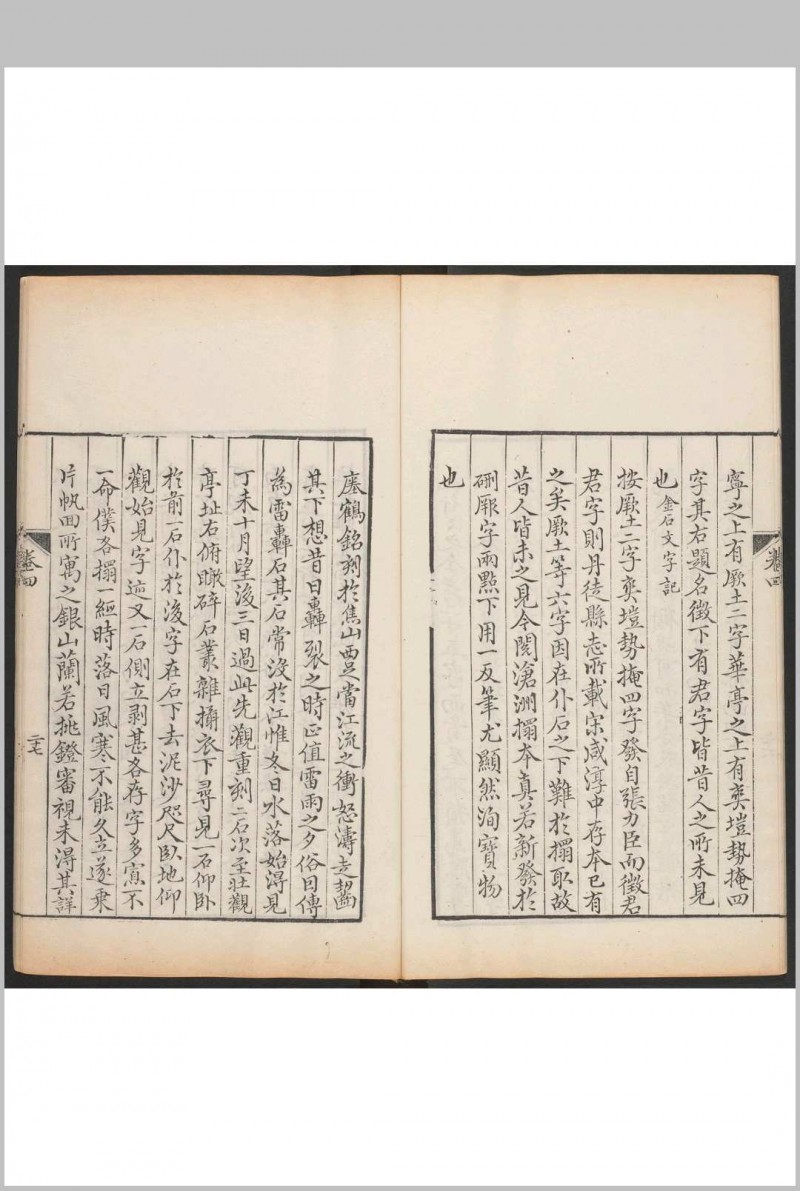 卷四
寧之上有厥土二字華亭之上有爽塏勢掩四
字其右題名徵下有君字皆昔人之所未見
也金石文字記
按厥土二字爽塏勢掩四字發自張力臣而徵君
君字則丹徒縣志所載宋咸淳中存本已有
之矣厥土等六字因在仆石之下難於搨取故
昔人皆未之見今閱滄洲搨本真若新發於
硎厥字兩點下用一反筆尤顯然洵寶物
也
瘞鶴銘刻於焦山西足當江流之衝怒濤走齧
其下想昔日轟裂之時正值雷雨之夕俗因傳
為雷轟石其石常沒於江惟冬日水落始得見
丁未十月望後三日過此先觀重刻二石次至壯觀
亭址右俯瞰碎石叢雜攝衣下尋見一石仰臥
於前一石仆於後字在石下去泥沙咫尺臥地仰
觀始見字迹又一石側立剥甚各存字多寡不
一命僕各搨一紙時落日風寒不能久立遂乘
片帆回所寓之銀山蘭若挑鐙審視未得其詳
卷四
二十七